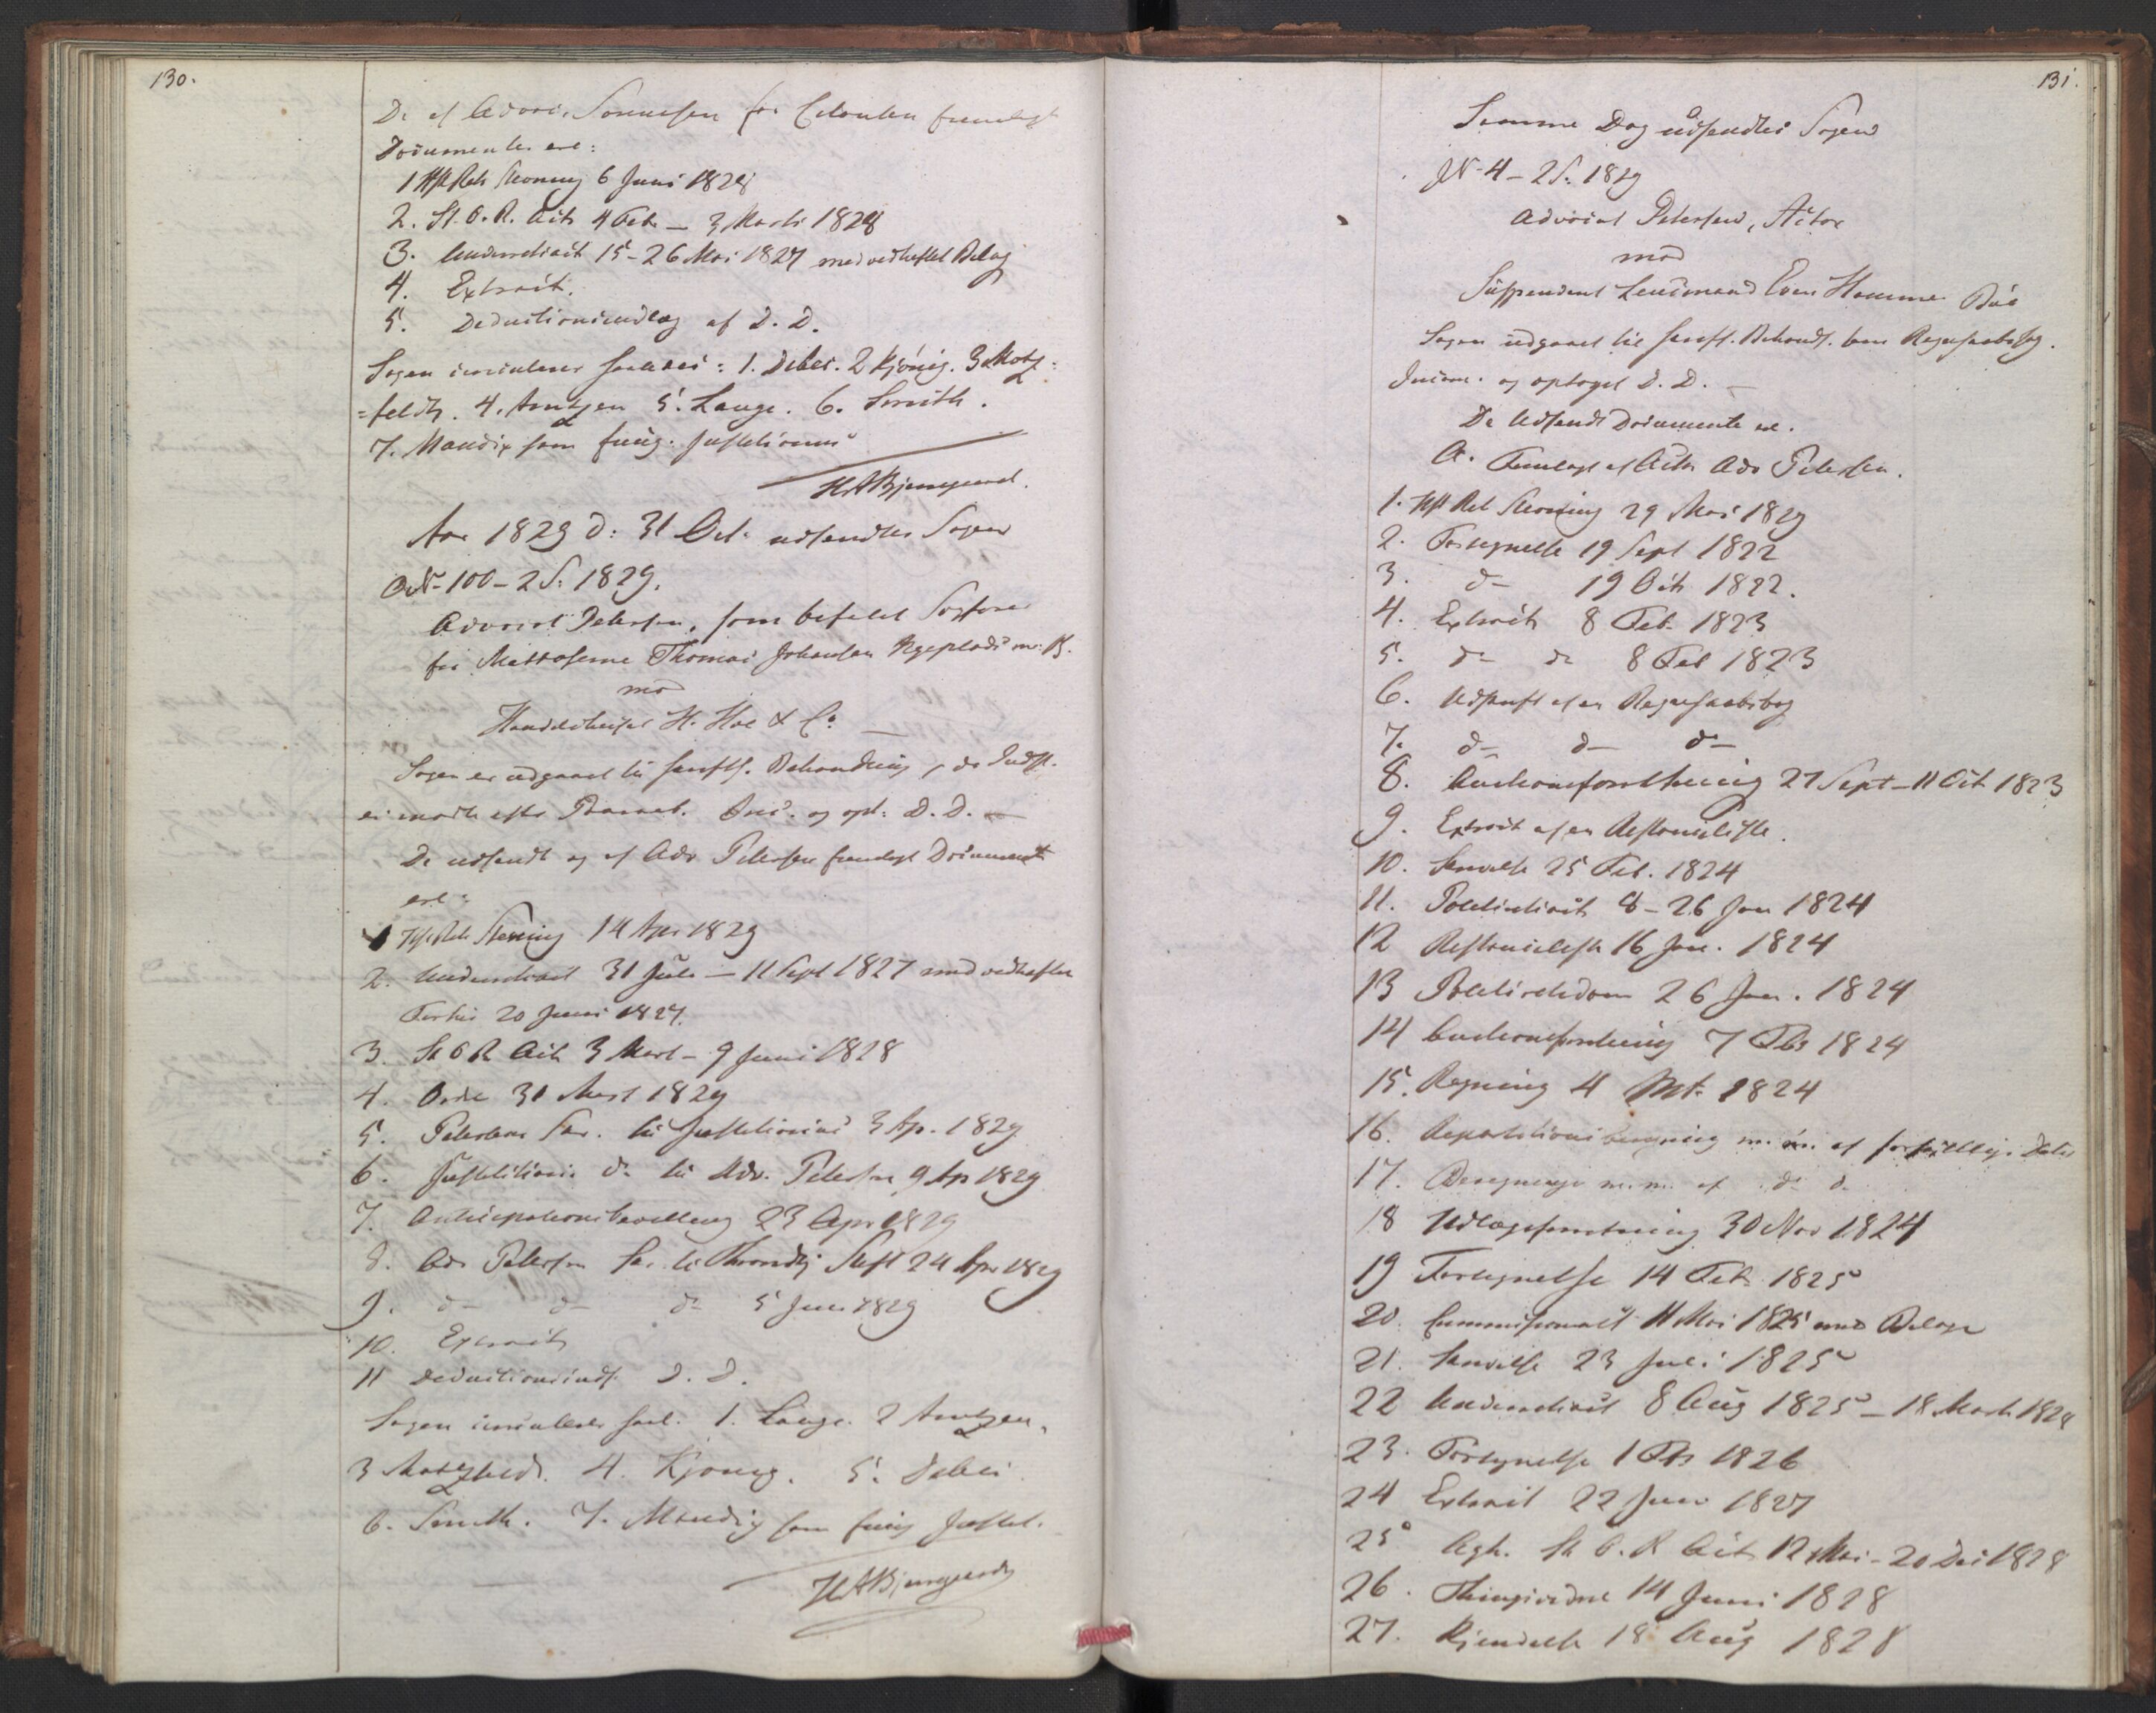 130.
De af Advoc. Sørensen for Citanten fremlagt
Documenter ere:
1 Hst Rets Stevning 6 Juni 1828
2. St. O. R. Act 4 Feb. – 3 Marts 1828
3. Underretsact 15 – 26 Mai 1827 med vedheftet Bilag
4. Extract.
5. Deductionsindlæg af D. D.
Sagen circulerer saaledes: 1. Debes. 2 Kjønig. 3 Motz-
=feldt. 4. Arntzen 5. Lange. 6. Smith.
7. Mandix som fung. Justitiarius
HABjerregaard.
Aar 1829 d: 31 Oct. udsendtes Sagen
No 100 – 2 S. 1829.
Advocat Petersen, som befalet Sagfører
for Matroserne Thomas Johansen Nyeplads m: fl.
mod
Handelshuset H. Hoe & Co.
Sagen er udgaaet til skriftl. Behandling, da Indst.
ei mødte efter Paaraab. Inc. og opt: D. D. –
De udsendt og af Adv. Petersen fremlagt Document
ere:
1 Hst Rets Stevning 14 Apr 1829
2. Underretsact 31 Juli – 11 Sept 1827 med vedheftet
20 Juni 1827.
3. St O R Act 3 Mart – 9 Juni 1828
4. Ordre 31 Mart 1829
5. Petersens Skr. til Justitiarius 3 Ap. 1829
6. Justitiarii do til Adv. Petersen 9 Ap 1829
7. Anticipationsbevilling 23 Apr 1829
8. Adv Petersen Skr. til Throndhj Stift 24 Apr 1829
9. do do do 5 Juni 1829
10. Extract
11 Deductionsindl. D. D.
Sagen circulerer saal. 1. Lange. 2 Arntzen.
3 Motzfeldt. 4. Kjønig. 5. Debes
6. Smith. 7. Mandix som fung Justit.
HABjerregaard
131.
Samme Dag udsendtes Sagen
No 4 – 2 S. 1829
Advocat Petersen, Actor
mod
Suspenderet Lensmand Even Hammer Bøe
Sagen udgaaet til skriftl. Behandl. som Regnskabssag.
Incam. og optaget D. D. –
De Udsendt Documente ere.
A. Fremlagt af Actor Adv Petersen.
1. Hst Ret Stevning 29 Mai 1829
2. Fortegnelse 19 Sept 1822
3. do 19 Oct 1822.
4. Extract 8 Feb. 1823
5. do do 8 Feb 1823
6. Udskrift af en Regnskabsbog
7. do do do
8. Auctionsforretning 27 Sept – 11 Oct 1823
9. Extract af en Restanceliste.
10. Skrivelse 25 Feb. 1824
11. Politiretsact 8 – 26 Jan 1824
12 Restanceliste 16 Jan. 1824
13 Politiretsdom 26 Jan. 1824
14 Auctionsforretning 7 Feb 1824
15. Regning 4 Mt. 1824
16. Repartitionsberegning m. m. af forskjellige Dato
17. Beregninge m. m. af do do
18 Udlægsforretning 30 Nov 1824
19 Fortegnelse 14 Feb 1825
20. Commissionsact 11 Mai 1825 med Bilage
21. Skrivelse 23 Juli 1825
22 Underretsact 8 Aug 1825 – 18 Mart 1828
23. Fortegnelse 1 Feb 1826
24 Extract 22 Juni 1827
25 St O. R Act 12 Mai – 20 Dec 1828
26. Thingsvidne 14 Juni 1828
27. Kjendelse 18 Aug 1828